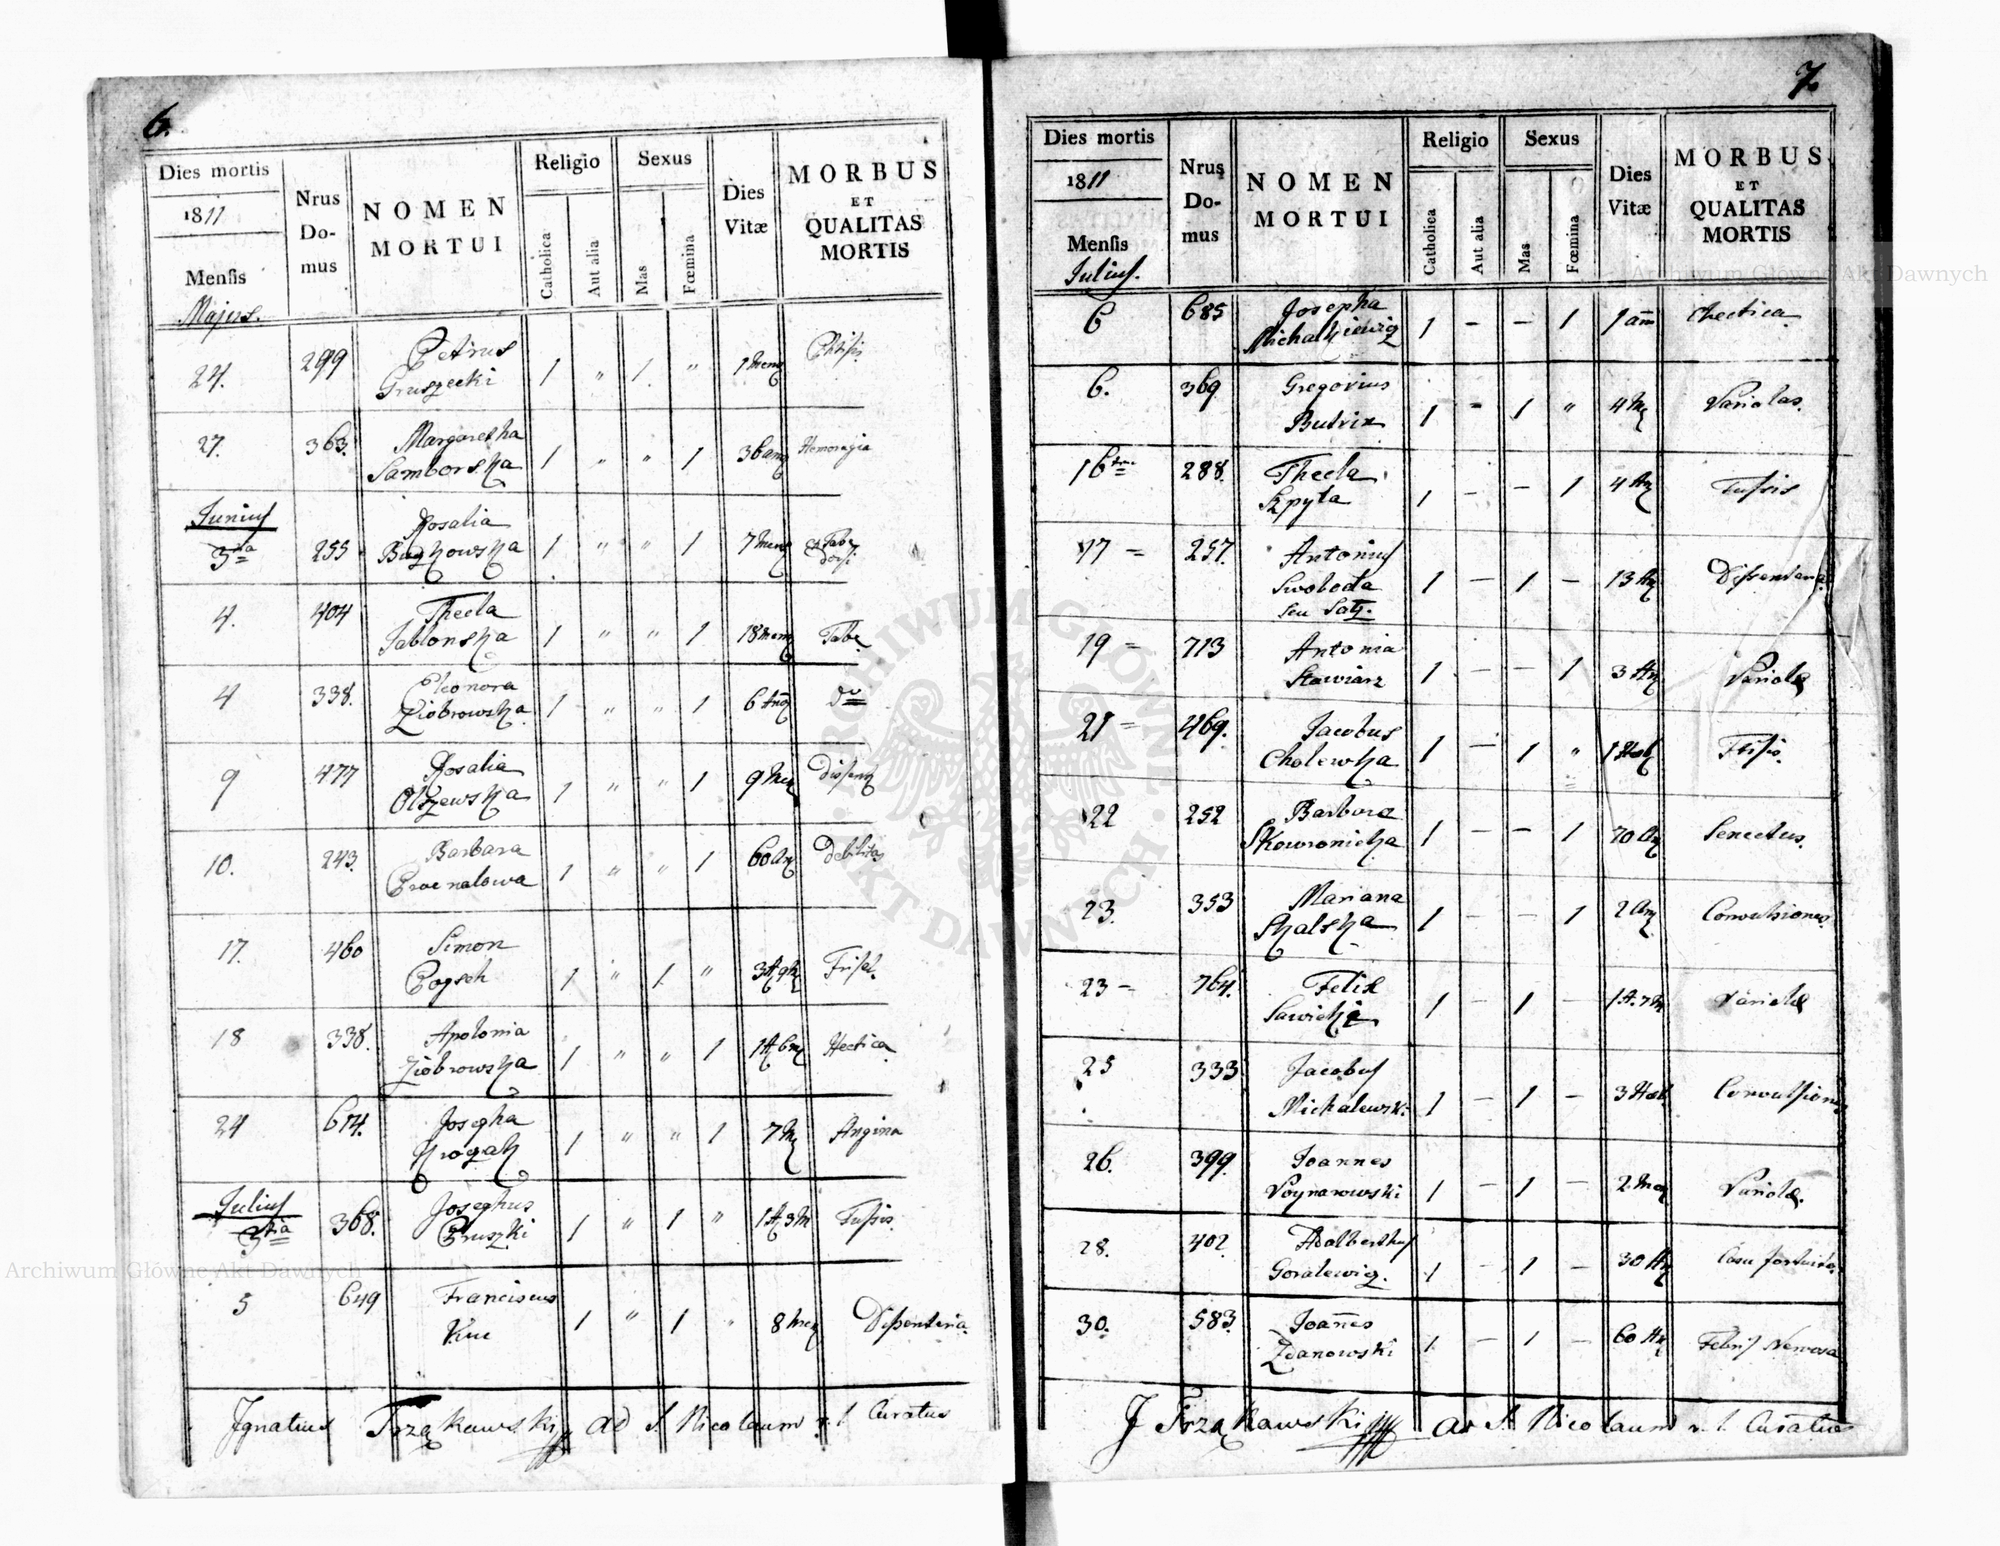 6.
Dies mortis
1811
Mensis
Majus.
Nrus Do-mus
NOMEN MORTUI
Religio
Catholica
Aut alia
Sexus
Mas
Fœmina
Dies Vitæ
MORBUS ET QUALITAS MORTIS
24. 299 Petrus Gruszecki 1 " 1. " 1 mens Phtisis
27. 363. Margaretha Samborska 1 " " 1 36 ann Hemoragia
Junius
3tia 255 Rosalia 1 " " 1 7 mens Tabe dorsi
4. 404 Thecla Jablonska 1 " " 1 18 mens Tabe
4 338. Eleonora Ziobrowska 1 " " 1 6 Ann do
9 477 Rosalia Olszewska 1 " " 1 9 Men
10. 243. Barbara 1 " " 1 60 An Debilitas
17. 460 Simon 1 " 1. "
18 338. Apolonia Ziobrowska 1 " " 1 1 A 6 m Hectica
24 674. Josepha 1 " " 1 7 M Angina
Julius
3tia 368. Josephus Pruszki 1 " 1 " 1 A 3 M Tussis
5 649 Franciscus Kuc 1 " 1 " 8 men Dissenteria
Ignatius Trząkawski ad S. Nicolaum Curatus
7.
Dies mortis
1811
Mensis
Julius.
Nrus Do-mus
NOMEN MORTUI
Religio
Catholica
Aut alia
Sexus
Mas
Fœmina
Dies Vitæ
MORBUS ET QUALITAS MORTIS
6 685 Josepha Michalkiewicz 1 – – 1 1 ann Chectica
6. 369. Gregorius 1 – 1 " 4 M Variolas.
16 288. Thecla Szpyta 1 – – 1 4 An Tussis
17 – 257. Antonius Swoboda seu 1 – 1 – 13 An Dissenteria
19 – 713 Antonia Stawiarz 1 – – 1 3 An Variolæ
21 – 469. Jacobus Cholewka 1 – 1 "
22 252 Barbara Skowronicka 1 – – 1 70 An Senectus.
23. 353 Mariana Skalska 1 – – 1 2 An Convulsiones
23 – 764. Felix Sawicki 1 – 1 – 1 A. 7 M Variolæ
25 333 Jacobus Michalewski 1 – 1 – 3 Heb. Convulsiones
26. 399. Joannes Woynarowski 1 – 1 – 2 men Variolæ.
28. 402. Adalberthus Goralewicz. 1 – 1 – 30 An Casu fortuito.
30. 583. Joannes Zdanowski 1. – 1 – 60 An Febris Nervosa
J Trząkawski ad S Nicolaum Curatus
Archiwum Główne Akt Dawnych
Archiwum Główne Akt Dawnych
ARCHIWUM GŁÓWNE AKT DAWNYCH